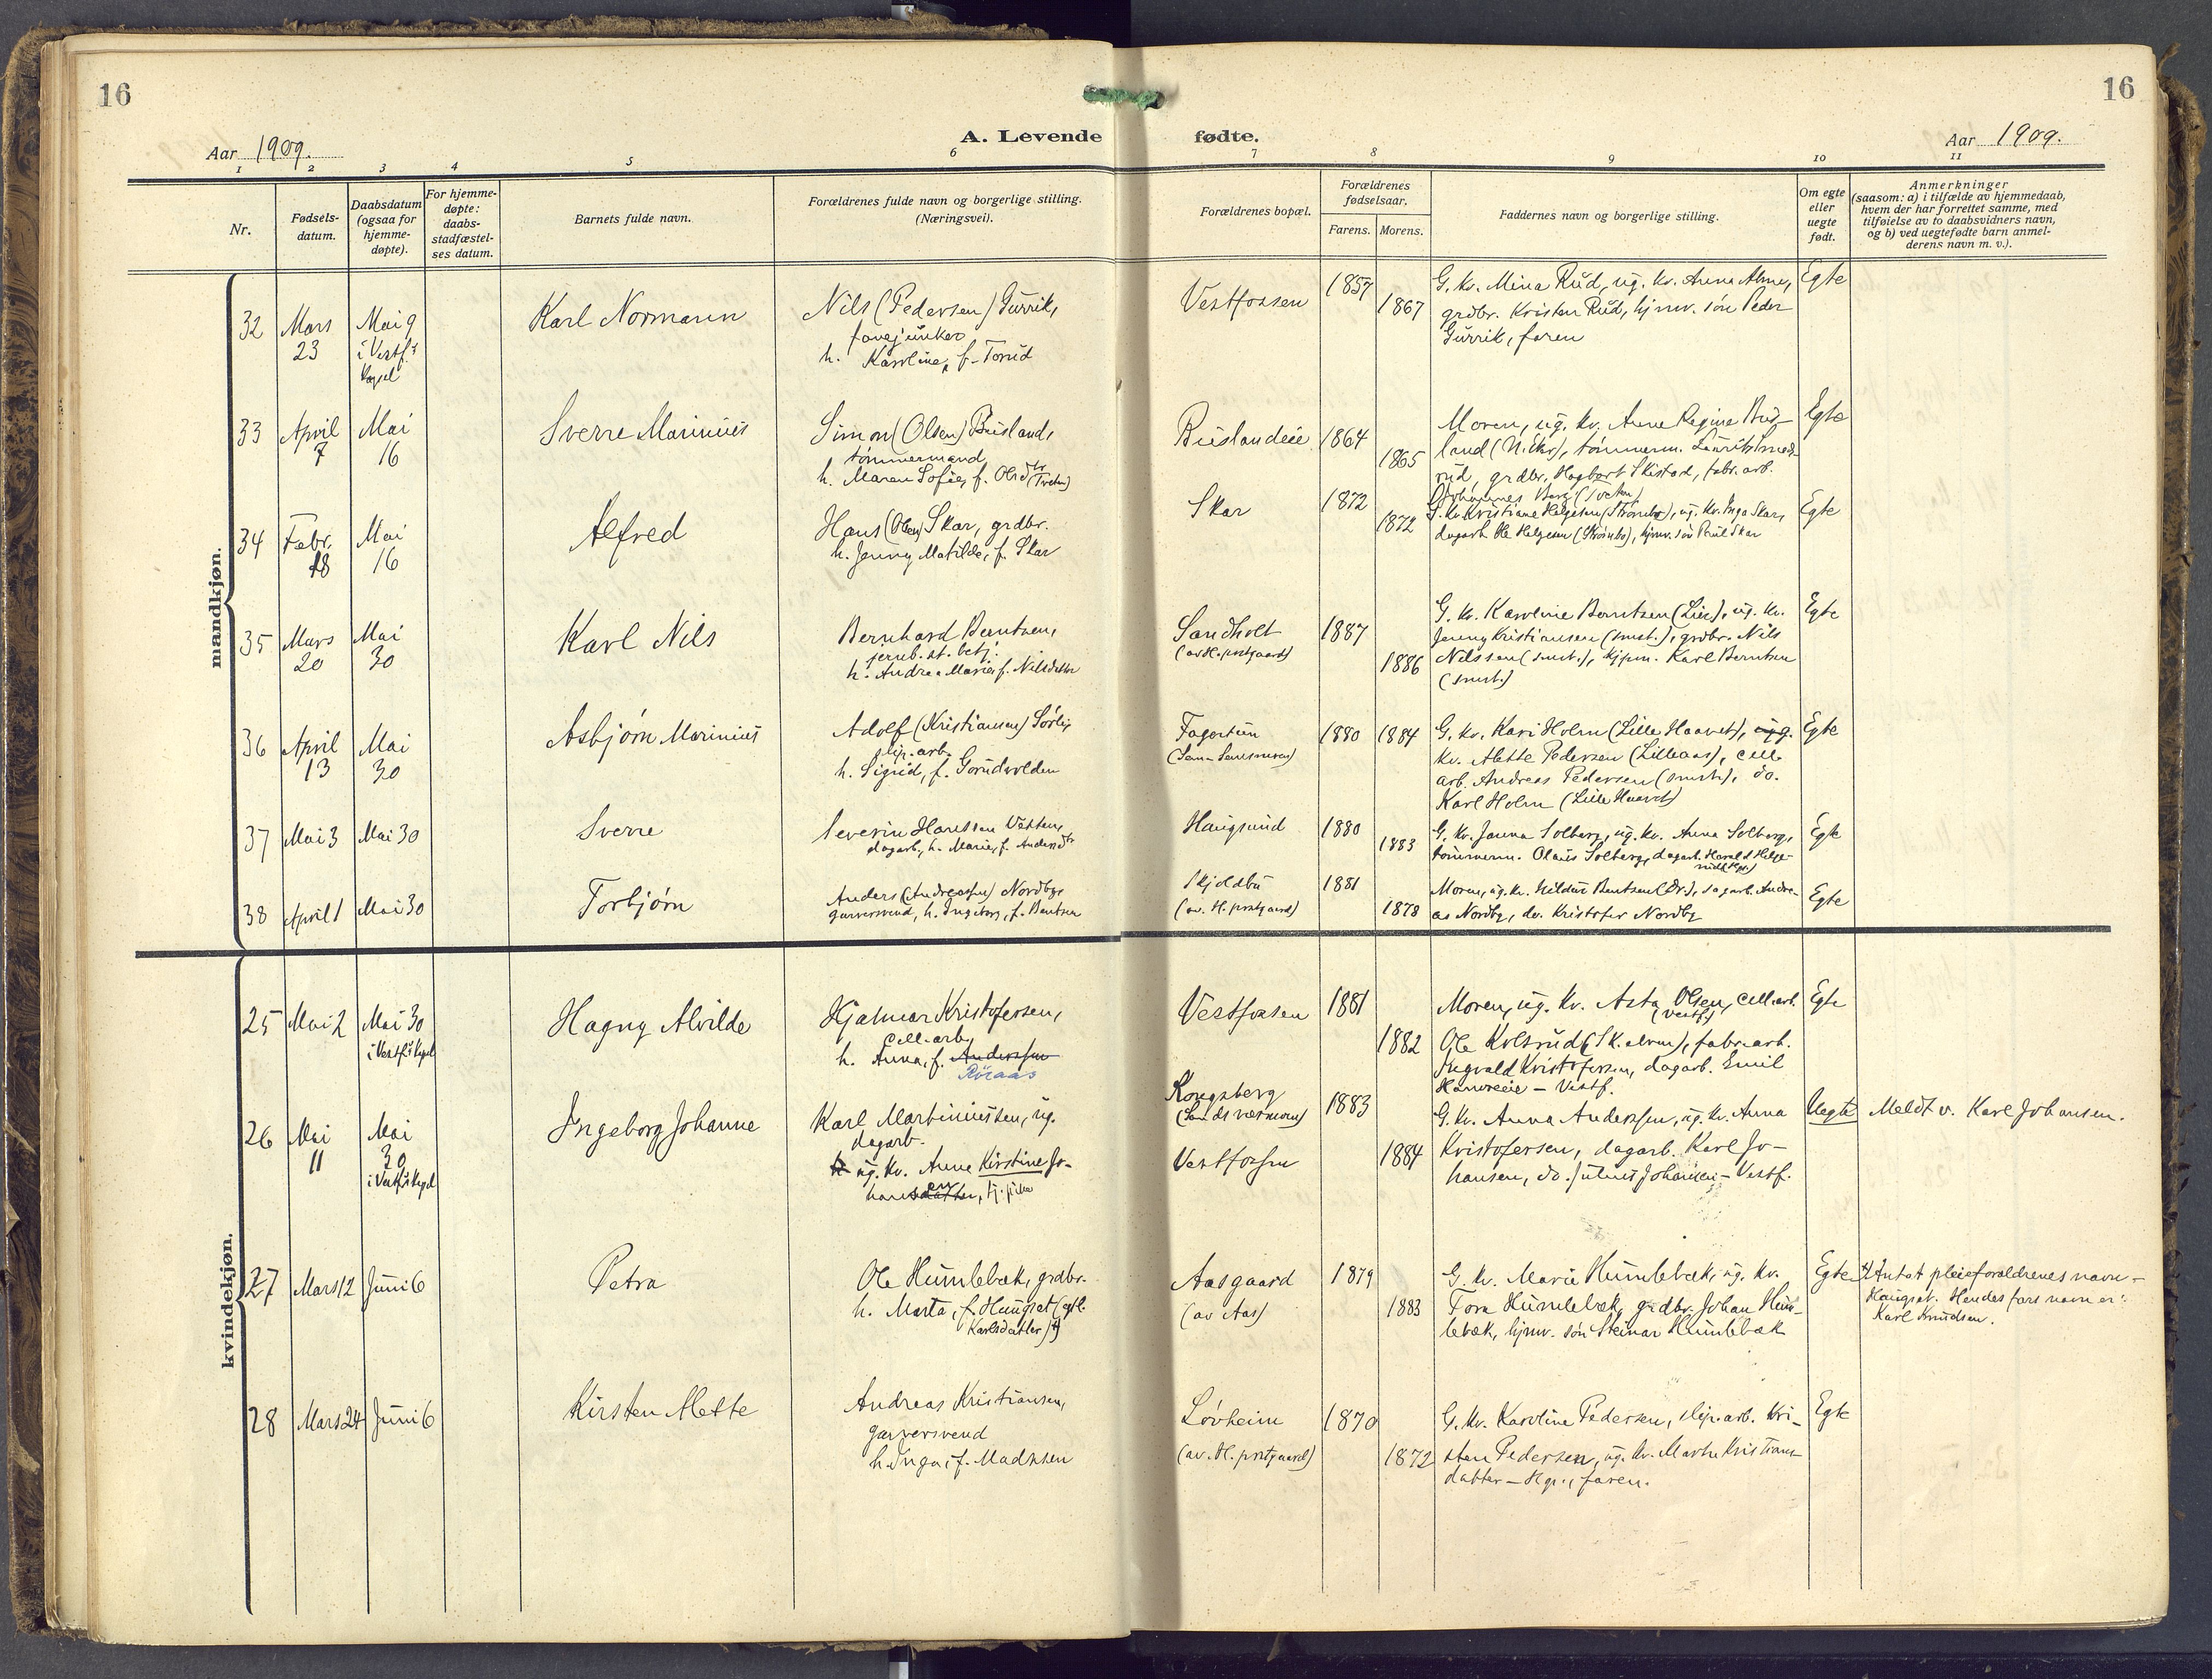 16
16
A. Levende fødte.
Aar 1909.
Aar 1909.
1 2 3 4 5 6 7 8 9 10 11
Nr.
Fødsels-
datum.
Daabsdatum
(ogsaa for
hjemme-
døpte).
For hjemme-
døpte:
daabs-
stadfæstel-
ses datum.
Barnets fulde navn.
Forældrenes fulde navn og borgerlige stilling.
(Næringsvei).
Forældrenes bopæl.
Forældrenes
fødselsaar.
Farens. Morens.
Faddernes navn og borgerlige stilling.
Om egte
eller
uegte
født.
Anmerkninger
(saasom: a) i tilfælde av hjemmedaab,
hvem der har forrettet samme, med
tilføielse av to daabsvidners navn,
og b) ved uegtefødte barn anmel-
derens navn m. v.).
mandkjøn.
32
Mars
23
Mai 9
i Vestf.s
Kapel
Karl Normann
Nils (Pedersen) Gurrik,
h. Karoline, f.
Vestfossen
1857
1867
G. kv. Mina Rud, ug. kv. Anna
grdbr. Kristen Rud, hjmv. søn Peder
Gurrik, faren
Egte
33
April
7
Mai
16
Sverre Marinius
Simon (Olsen) Buisland,
tømmermand
h. Maren Sofie, f. Olsdtr
Buislandeie
1864
1865
Moren, ug. kv. Anne Regine Buis-
land (N. Eker), tømmerm.
rud, grdbr. Hagbart Skistad, fabr. arb.
Johannes Berg
Egte
34
Febr.
18
Mai
16
Alfred
Hans (Olsen) Skar, grdbr.
h. Jenny Matilde, f. Skar
Skar
1872
1872
G. kv. Kristiane Helgesen (Strømbo), ug. kv. Inga Skar,
dagarb. Ole Helgesen (Strømbo), hjmv. søn Paul Skar
Egte
35
Mars
20
Mai
30
Karl Nils
Bernhard Berntsen,
jernb. st. betj.
h. Andrea Marie, f. Nilsdatter
Sandholt
(av H. prstgaard)
1887
1886
G. kv. Karoline Berntsen (Lier), ug. kv.
Jenny Kristiansen (smst.), grdbr. Nils
Nilssen (smst.), kjpm. Karl Berntsen
(smst.)
Egte
36
April
13
Mai
30
Asbjørn Marinius
Adolf (Kristiansen) Sørli,
slip. arb.
h. Sigrid, f. Gorudvolden
Fagertun
1880
1884
G. kv. Kari Holm (Lille Haavet), ug.
kv. Alette Pedersen (Lilleaas), cell.
arb. Andreas Pedersen (smst.), do.
Karl Holm (Lille Haavet)
Egte
37
Mai 3
Mai 30
Sverre
Severin Hanssen
dagarb., h. Marie, f. Andersdtr
Haugsund
1880
1883
G. kv. Janna Solberg, ug. kv. Anna Solberg,
tømmerm. Olaus Solberg, dagarb. Harald Helge-
Egte
38
April 1
Mai 30
Torbjørn
Anders (Andreassen) Nordby,
garversvend, h. Ingeborg, f. Bentsen
Skjoldbu
(av. H. prstgaard)
1881
1878
Moren, ug. kv. Hildur Bentsen (Dr.), dagarb. Andre-
as Nordby, do. Kristofer Nordby
Egte
kvindekjøn.
25
Mai 2
Mai 30
i Vestf.s Kapel
Hagny Alvilde
Hjalmar Kristofersen,
cell. arb.
h. Anna, f. Anderssen
Røraas
Vestfossen
1881
1882
Moren, ug. kv. Asta Olsen, cell. arb.
(Vestf.)
Ole Kolsrud, fabr. arb.
Ingvald Kristofersen, dagarb. Emil
Hanseeie – Vestf.
Egte
26
Mai
11
Mai
30
i Vestf.s Kapel
Ingeborg Johanne
Karl Martiniussen, ug.
dagarb.
ug. kv. Anne Kirstine Jo-
hansen, tj. pike
Kongsberg
Vestfossen
1883
1884
G. kv. Anna Anderssen, ug. kv. Anna
Kristofersen, dagarb. Karl Jo-
hansen, do. Julius Johansen – Vestf.
Uegte
Meldt v. Karl Johansen.
27
Mars 12
Juni 6
Petra
Ole Humlebæk, grdbr.
h. Marta, f. Haugset (egtl.
Karlsdatter)
Aasgaard
(av Aas)
1879
1883
G. kv. Marie Humlebæk, ug. kv.
Tora Humlebæk, grdbr. Johan Hum-
lebæk, hjmv. søn Steinar Humlebæk
Egte
Antat pleieforældrenes navn –
Haugset. Hendes fars navn er:
Karl Knudsen.
28
Mars 24
Juni 6
Kirsten Mette
Andreas Kristiansen,
garversvend
h. Inga, f. Madssen
Løvheim
(av. H. prstgaard)
1870
1872
G. kv. Karoline Pedersen, slip. arb. Kri-
sten Pedersen, ug. kv. Marthe Kristians-
datter – Hgs., faren.
Egte